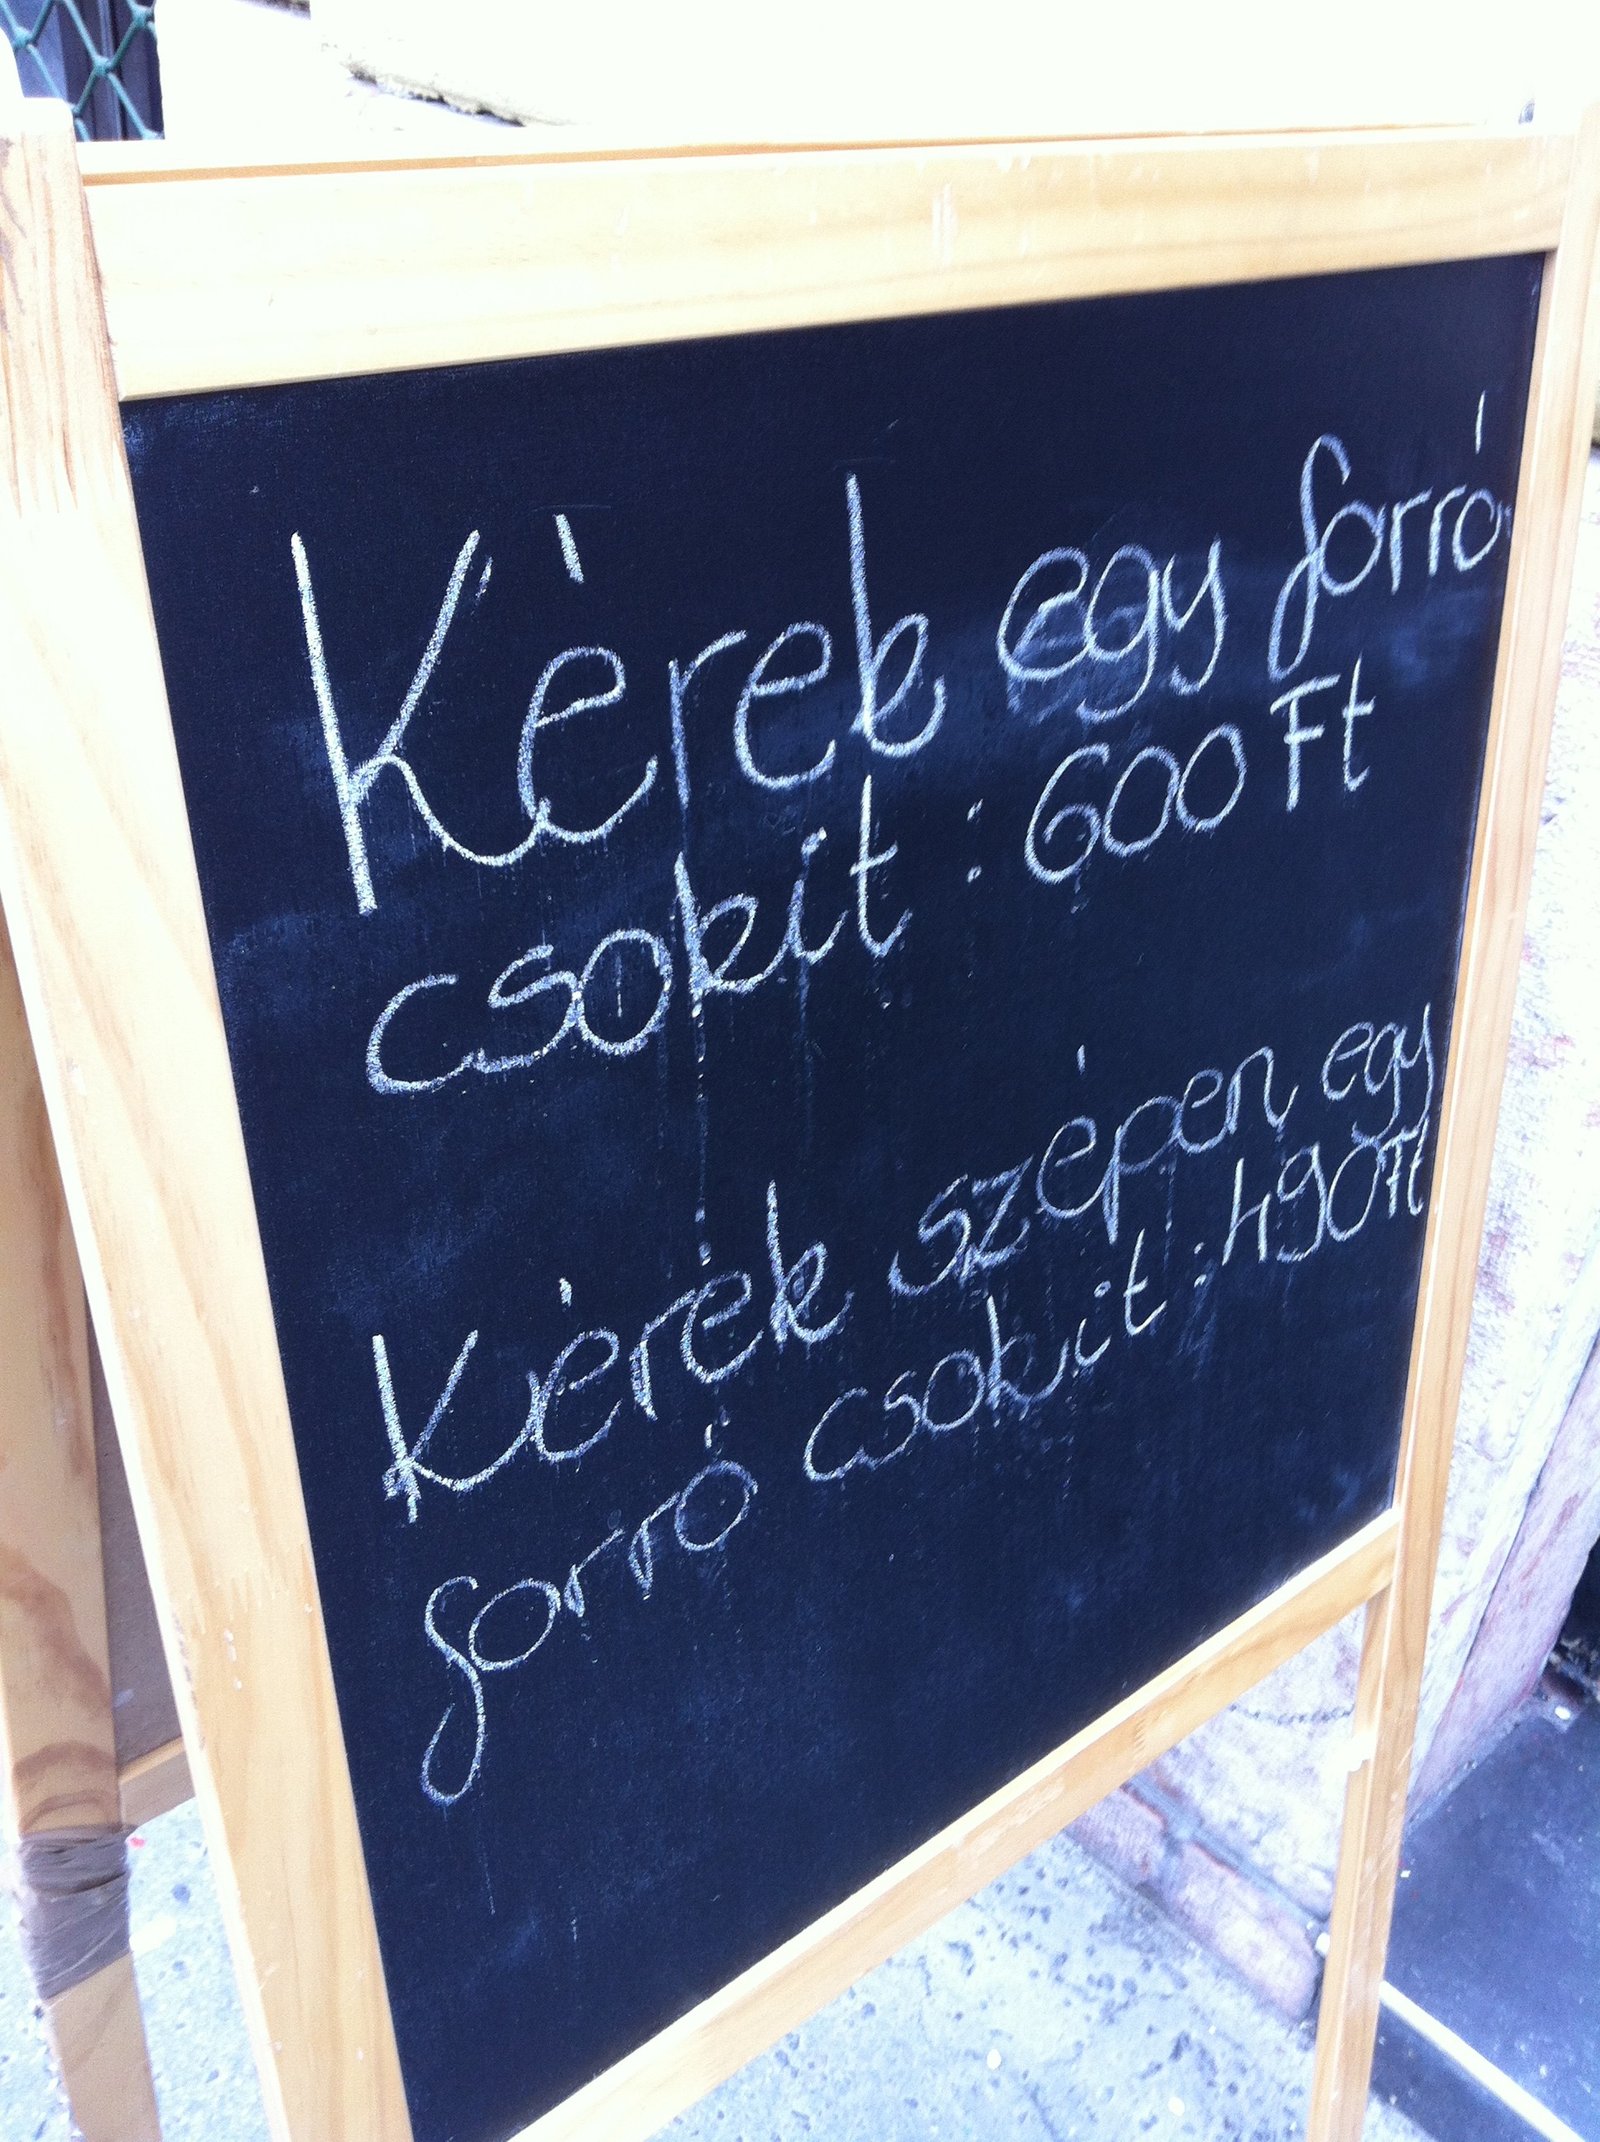 Kérek egy forró
csokit : 600 Ft
Kérek szépen egy
forró csokit : 490 Ft